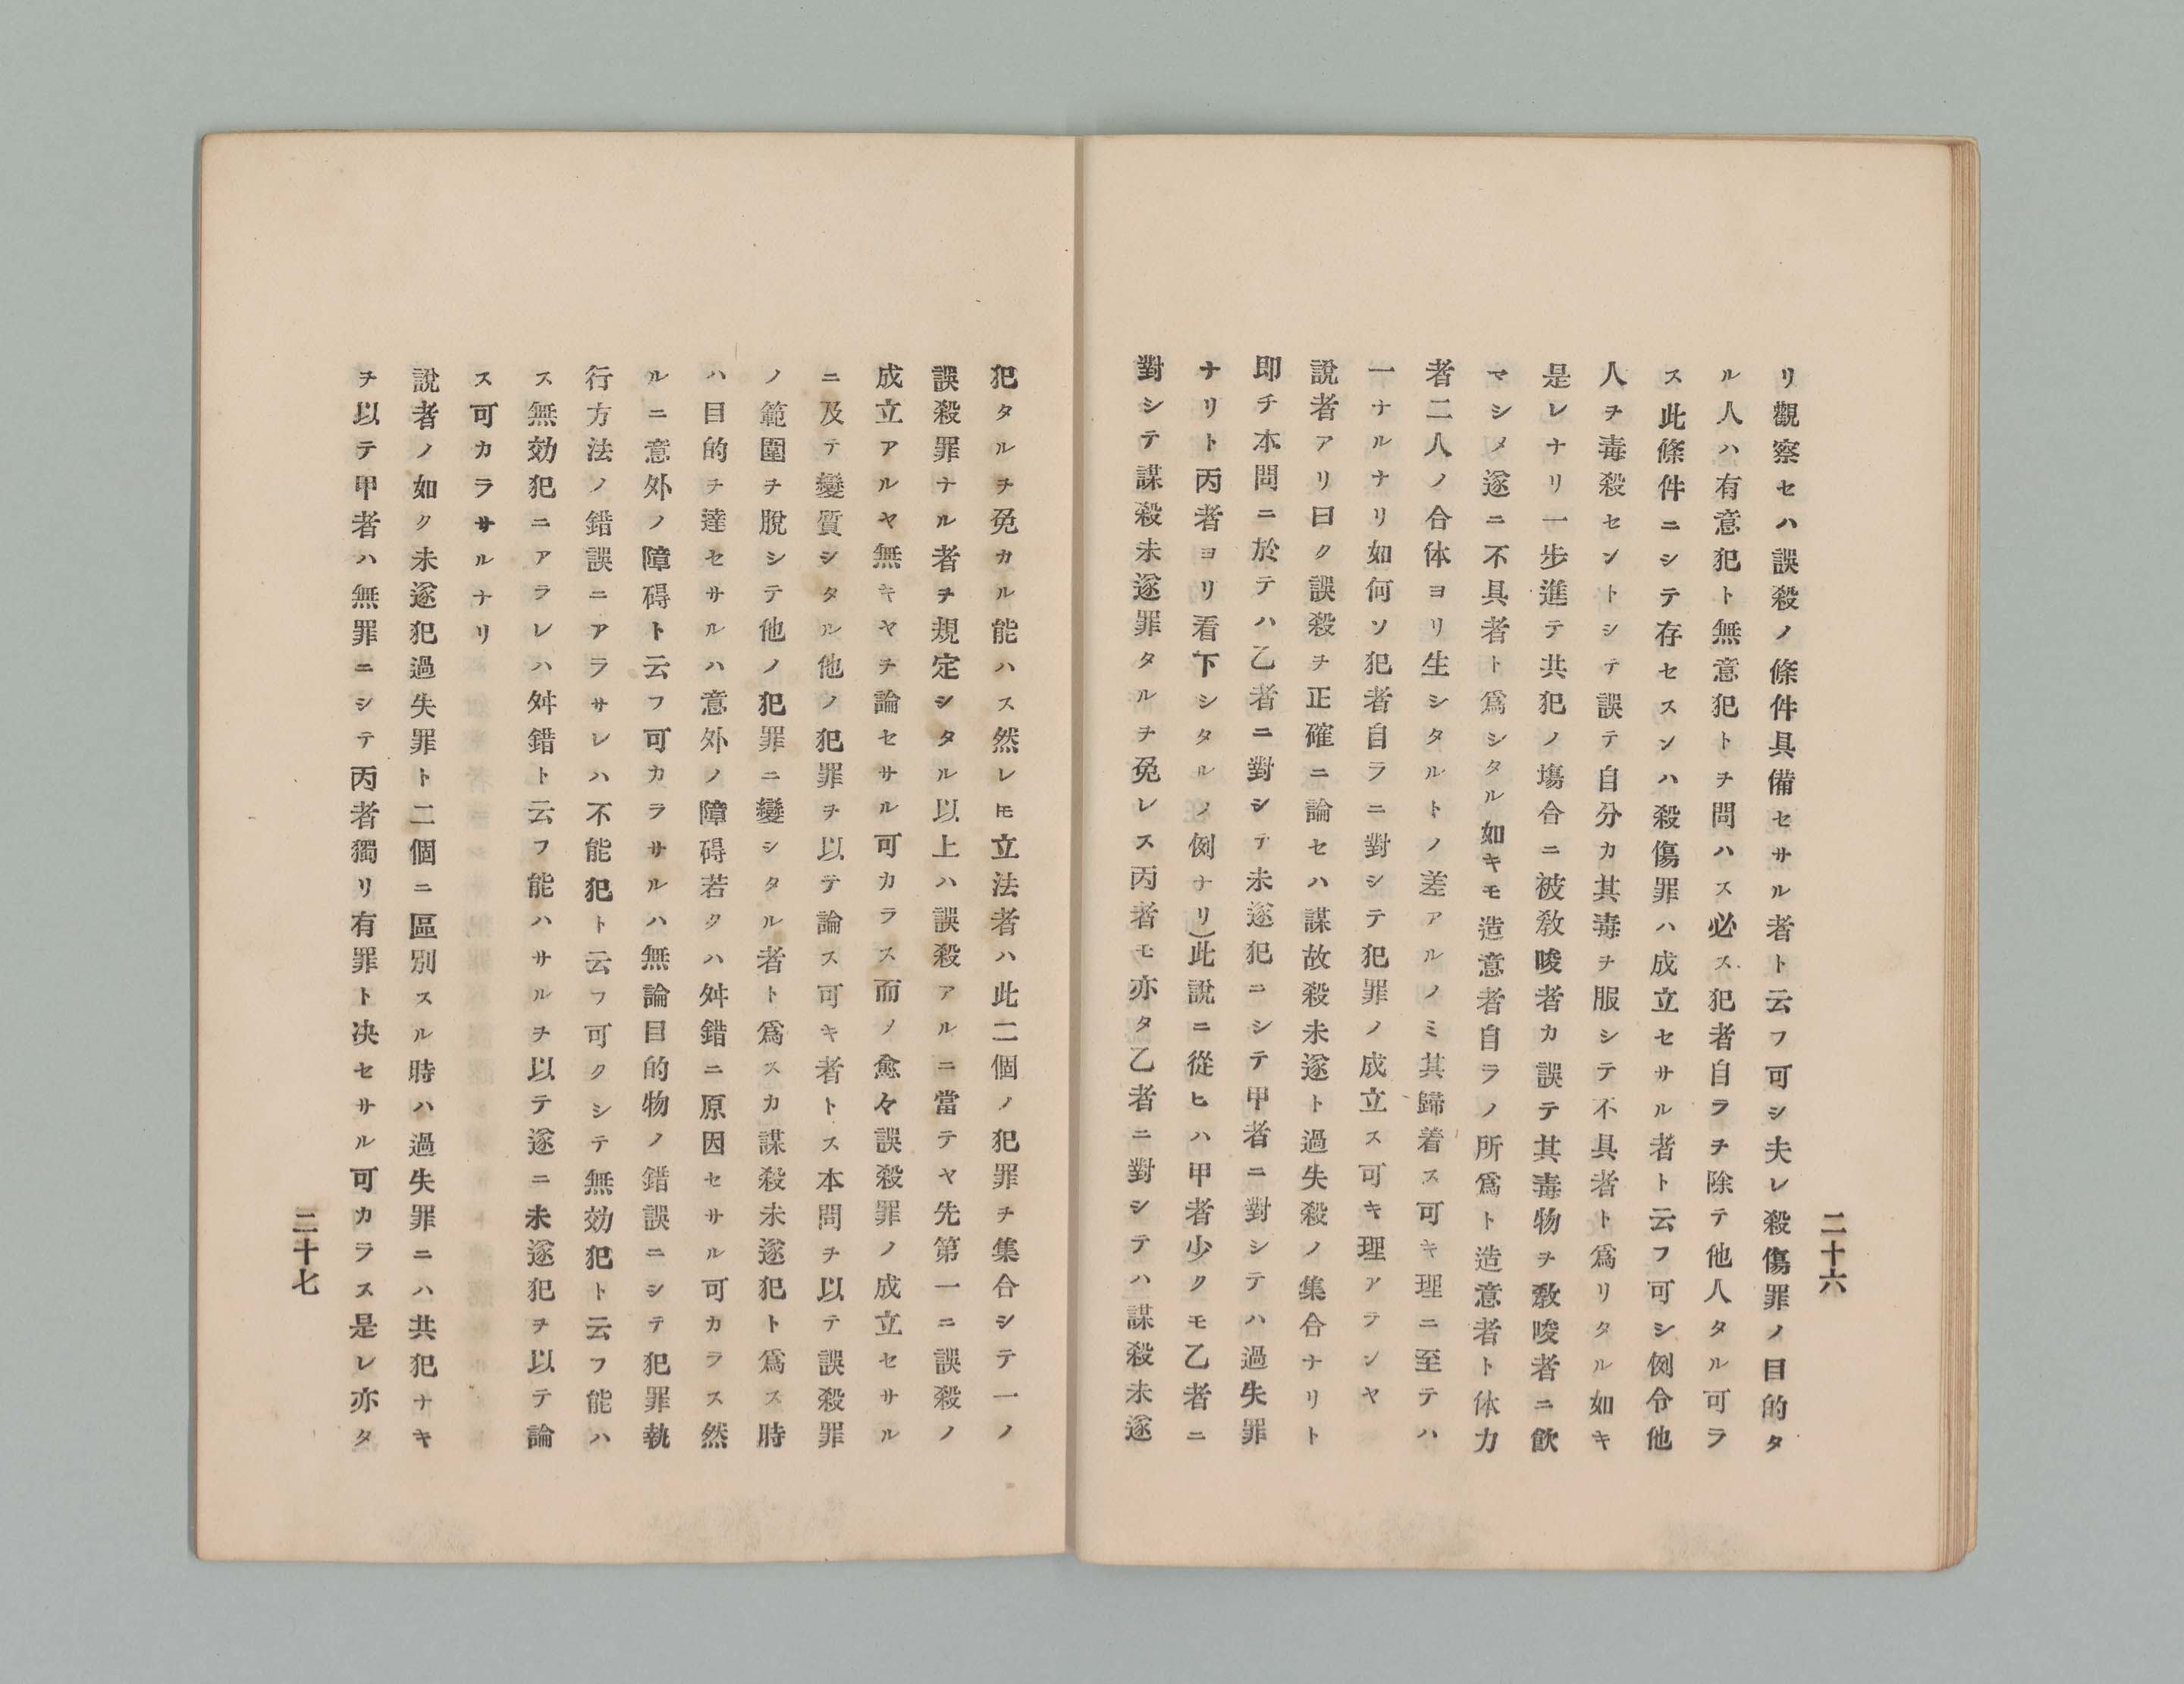 二十六
リ觀察セハ誤殺ノ條件具備セサル者ト云フ可シ夫レ殺傷罪ノ目的タ
ル人ハ有意犯ト無意犯トヲ問ハス必ス犯者自ラヲ除テ他人タル可ラ
ス此條件ニシテ存セスンハ殺傷罪ハ成立セサル者ト云フ可シ例令他
人ヲ毒殺セントシテ誤テ自分カ其毒ヲ服シテ不具者ト爲リタル如キ
是レナリ一步進テ共犯ノ塲合ニ被敎唆者カ誤テ其毒物ヲ敎唆者ニ飮
マシメ遂ニ不具者ト爲シタル如キモ造意者自ラノ所爲ト造意者ト体力
者二人ノ合体ヨリ生シタルトノ差アルノミ其歸着ス可キ理ニ至テハ
一ナルナリ如何ソ犯者自ラニ對シテ犯罪ノ成立ス可キ理アランヤ
說者アリ曰ク誤殺ヲ正確ニ論セハ謀故殺未遂ト過失殺ノ集合ナリト
即チ本問ニ於テハ乙者ニ對シテ未遂犯ニシテ甲者ニ對シテハ過失罪
ナリト丙者ヨリ看下シタルノ例ナリ)此說ニ從ヒハ甲者少クモ乙者ニ
對シテ謀殺未遂罪タルヲ免レス丙者モ亦タ乙者ニ對シテハ謀殺未遂
犯タルヲ免カル能ハス然レトモ立法者ハ此二個ノ犯罪ヲ集合シテ一ノ
誤殺罪ナル者ヲ規定シタル以上ハ誤殺アルニ當テヤ先第一ニ誤殺ノ
成立アルヤ無キヤヲ論セサル可カラス而ノ愈々誤殺罪ノ成立セサル
ニ及テ變質シタル他ノ犯罪ヲ以テ論ス可キ者トス本問ヲ以テ誤殺罪
ノ範圍ヲ脫シテ他ノ犯罪ニ變シタル者ト爲スカ謀殺未遂犯ト爲ス時
ハ目的ヲ達セサルハ意外ノ障碍若クハ舛錯ニ原因セサル可カラス然
ルニ意外ノ障碍ト云フ可カラサルハ無論目的物ノ錯誤ニシテ犯罪執
行方法ノ錯誤ニアラサレハ不能犯ト云フ可クシテ無効犯ト云フ能ハ
ス無効犯ニアラレハ舛錯ト云フ能ハサルヲ以テ遂ニ未遂犯ヲ以テ論
ス可カラサルナリ
說者ノ如ク未遂犯過失罪ト二個ニ區別スル時ハ過失罪ニハ共犯ナキ
ヲ以テ甲者ハ無罪ニシテ丙者獨リ有罪ト决セサル可カラス是レ亦タ
二十七